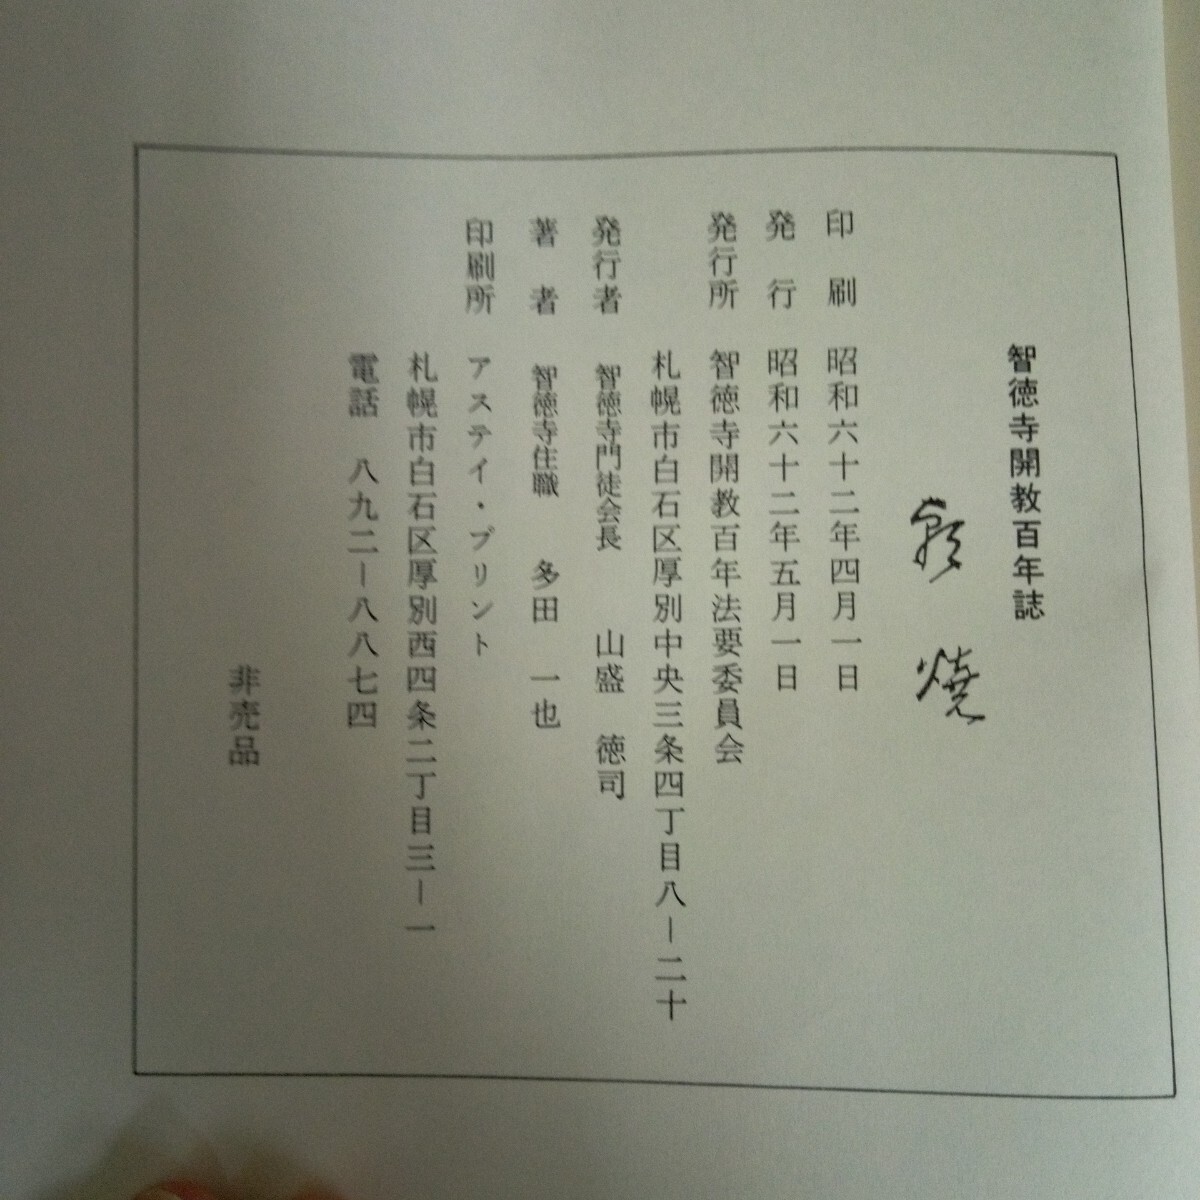 智徳寺開教百年誌
印刷　昭和六十二年四月一日
発行　昭和六十二年五月一日
発行所　智徳寺開教百年法要委員会
札幌市白石区厚別中央三条四丁目八－二十
発行者　智徳寺門徒会長　山盛　徳司
著者　智徳寺住職　多田　一也
印刷所　アステイ・プリント
札幌市白石区厚別西四条二丁目三－一
電話　八九二－八八七四
非売品